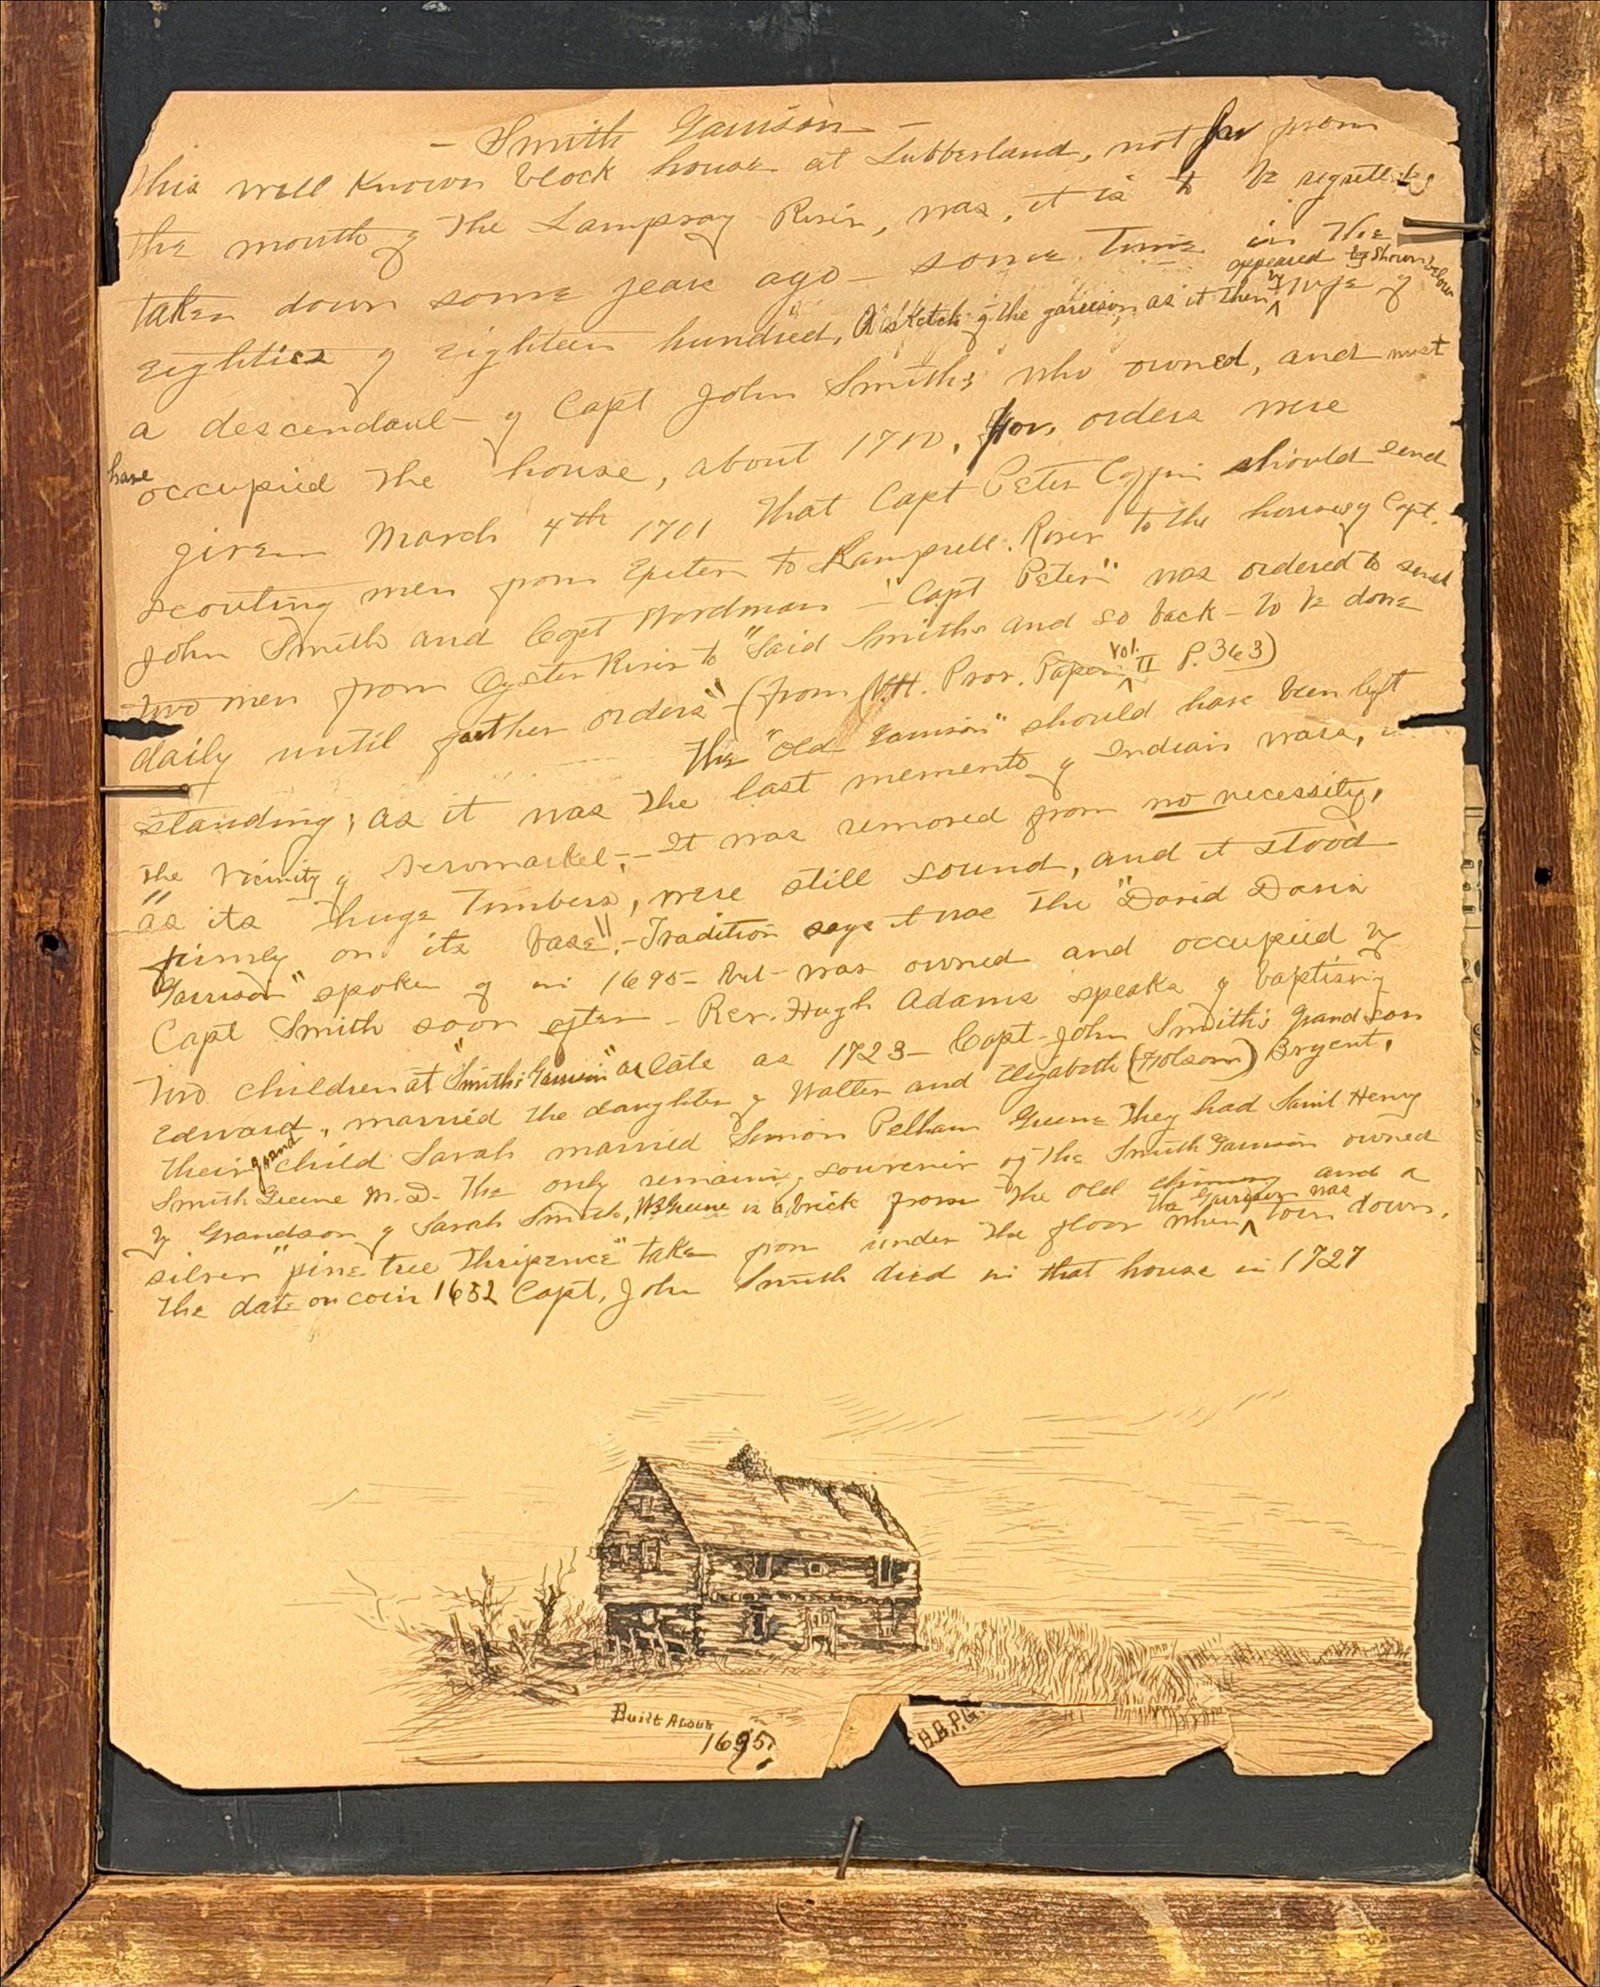 - Smith Garrison -
This well known block house at Lubberland, not far from
the mouth of the Lampray River, was, it is to be regretted
taken down some years ago - some time in the
eighties of eighteen hundred, A sketch of the garrison, as it then appeared is shown below by wife of
a descendant of Capt John Smith's who owned, and must
have occupied the house, about 1710, for, orders were
given March 4th 1701 that Capt Peter Coffin should send
scouting men from Exeter to Lamprell River to the house of Capt.
John Smith and Capt Wordman - "Capt Peter" was ordered to send
two men from Oyster River to "Said Smiths and so back - to be done
daily until further orders" - (from N.H. Prov. Papers Vol. II P. 363)
The "Old Garrison" should have been left
standing, as it was the last memento of Indian wars, in
the vicinity of Newmarket. - It was removed from no necessity,
"as its huge timbers, were still sound, and it stood
firmly on its base". - Tradition says it was the "David Davis
Garrison" spoken of in 1695 - but was owned and occupied by
Capt Smith soon after - Rev. Hugh Adams speaks of baptising
two children at "Smith's Garrison" as late as 1723 - Capt. John Smith's grandson
Edward, married the daughter of Walter and Elizabeth (Folsom) Bryent,
their grand child Sarah married Simon Pelham Greene They had Saml Henry
Smith Greene M.D. The only remaining souvenir of the Smith Garrison owned
by Grandson of Sarah Smith, W B Greene is a brick from the old chimney and a
silver "pine tree thripence" take from under the floor when the Garrison was torn down.
The date on coin 1652 Capt, John Smith died in that house in 1727
Built About
1695
H.B.P.G.